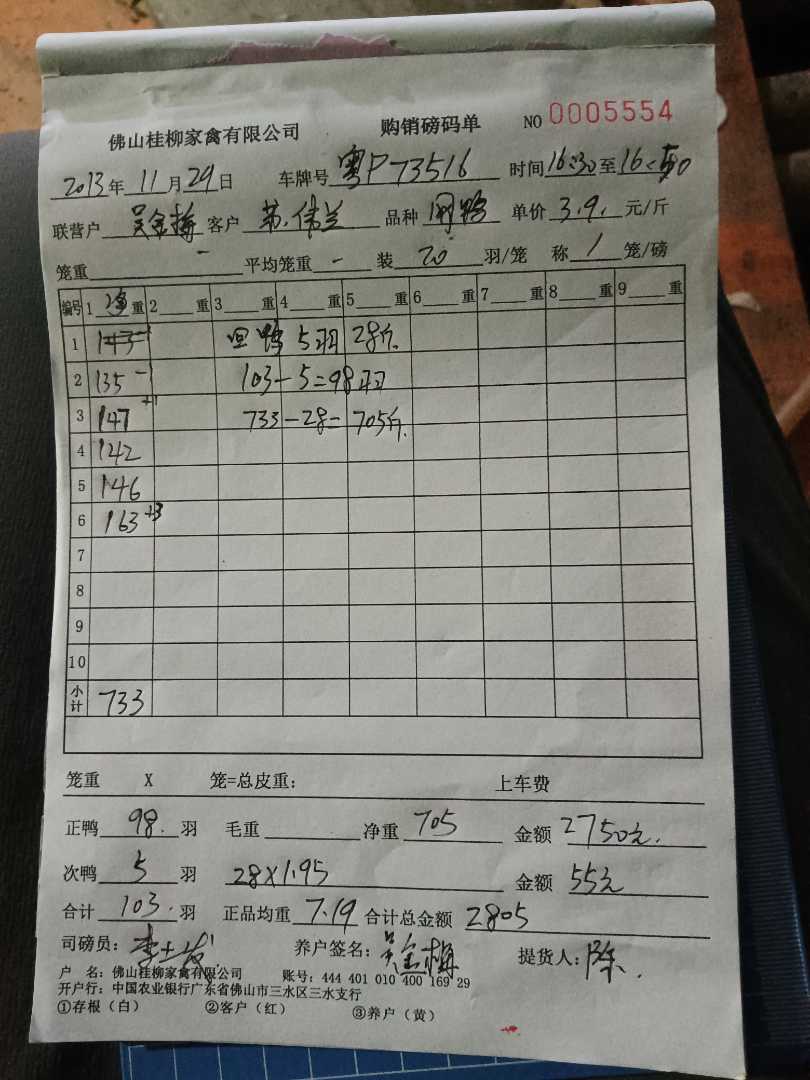 佛山桂柳家禽有限公司 购销磅码单 NO 0005554
2013年 11月29日 车牌号 粤P73516 时间16:30至16:50
联营户 吴金梅 客户 品种 单价 3.9. 元/斤
笼重 - 平均笼重 - 装 20 羽/笼 称 1 笼/磅
编号 1 净 重 2 重 3 重 4 重 5 重 6 重 7 重 8 重 9 重
1 143 鸭 5羽 28斤.
2 135 -1 103-5=98羽
3 147 +1 733-28=705斤.
4 142
5 146
6 163 +3
7
8
9
10
小计 733
笼重 X 笼=总皮重: 上车费
正鸭 98. 羽 毛重 净重 705 金额 2750元.
次鸭 5 羽 28X1.95 金额 55元
合计 103. 羽 正品均重 7.19 合计总金额 2805
司磅员: 李 养户签名: 吴金梅 提货人:
户 名: 佛山桂柳家禽有限公司 账号: 444 401 010 400 169 29
开户行: 中国农业银行广东省佛山市三水区三水支行
①存根（白） ②客户（红） ③养户（黄）